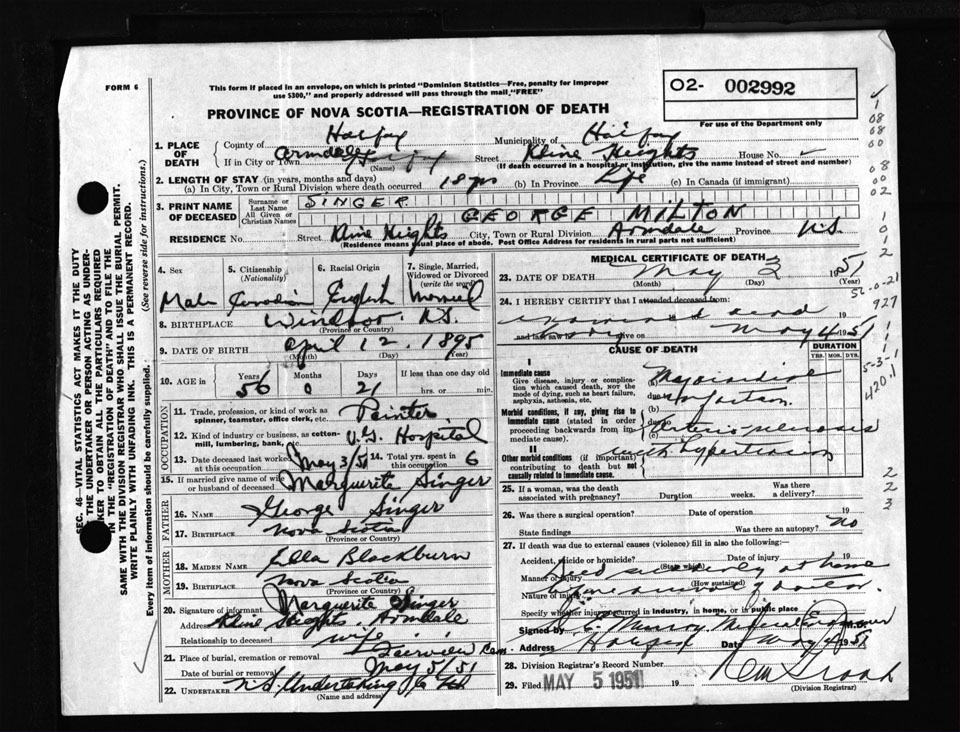 FORM 6
This form if placed in an envelope, on which is printed "Dominion Statistics—Free, penalty for improper
use $300," and properly addressed will pass through the mail "FREE"
PROVINCE OF NOVA SCOTIA—REGISTRATION OF DEATH
02- 002992
For use of the Department only
1. PLACE OF DEATH
County of Halifax Municipality of Halifax
If in City or Town Armdale (Name) Street Kline Heights House No.
(If death occurred in a hospital or institution, give the name instead of street and number)
2. LENGTH OF STAY (in years, months and days)
(a) In City, Town or Rural Division where death occurred 18 yrs (b) In Province Life (c) In Canada (if immigrant)
3. PRINT NAME OF DECEASED
Surname or Last Name SINGER
All Given or Christian Names GEORGE MILTON
RESIDENCE No. Street Kline Heights City, Town or Rural Division Armdale Province N.S.
(Residence means usual place of abode. Post Office Address for residents in rural parts not sufficient)
4. Sex
Male
5. Citizenship (Nationality)
Canadian
6. Racial Origin
English
7. Single, Married, Widowed or Divorced (write the word)
Married
8. BIRTHPLACE Windsor N.S.
(Province or Country)
9. DATE OF BIRTH April 12. 1895
(Month) (Day) (Year)
10. AGE in Years 56 Months 0 Days 21 If less than one day old
hrs. or min.
OCCUPATION
11. Trade, profession, or kind of work as spinner, teamster, office clerk, etc. Painter
12. Kind of industry or business, as cotton-mill, lumbering, bank, etc. V.G. Hospital
13. Date deceased last worked at this occupation May 3/51 14. Total yrs. spent in this occupation 6
15. If married give name of wife or husband of deceased Marguerite Singer
FATHER
16. NAME George Singer
17. BIRTHPLACE Nova Scotia
(Province or Country)
MOTHER
18. MAIDEN NAME Ella Blackburn
19. BIRTHPLACE Nova Scotia
(Province or Country)
20. Signature of informant Marguerite Singer
Address Kline Heights. Armdale
Relationship to deceased wife
21. Place of burial, cremation or removal Fairview Cem
Date of burial or removal May 5/51
22. UNDERTAKER N.S. Undertaking Co Ltd
(Name and address)
MEDICAL CERTIFICATE OF DEATH
23. DATE OF DEATH May 3 1951
(Month) (Day) (Year)
24. I HEREBY CERTIFY that I attended deceased from:
examined dead
body
and last saw alive on May 4 1951
CAUSE OF DEATH
DURATION
YRS. MOS. DYS.
Immediate cause
Give disease, injury or complication which caused death, NOT the mode of dying, such as heart failure, asphyxia, asthenia, etc.
(a) Myocardial
Infarction
Morbid conditions, if any, giving rise to immediate cause (stated in order proceeding backwards from immediate cause).
(b)
(c) Arterio sclerosis
with hypertension
II
Other morbid conditions (if important) contributing to death but not causally related to immediate cause.
25. If a woman, was the death associated with pregnancy? Duration weeks. Was there a delivery?
26. Was there a surgical operation? Date of operation 19
State findings Was there an autopsy? no
27. If death was due to external causes (violence) fill in also the following:
Accident, suicide or homicide? (State which) Date of injury 19
Manner of injury Died suddenly at home
(How sustained)
Nature of injury before arrival of doctor
Specify whether injury occurred in industry, in home, or in public place
Signed by Murray. Medical Examiner
Address Halifax Date May 4 1951
28. Division Registrar's Record Number
29. Filed MAY 5 1951 19
(Division Registrar)
SEC. 46 VITAL STATISTICS ACT MAKES IT THE DUTY
(See reverse side for instructions.)
WRITE PLAINLY WITH UNFADING INK. THIS IS A PERMANENT RECORD.
Every item of information should be carefully supplied.